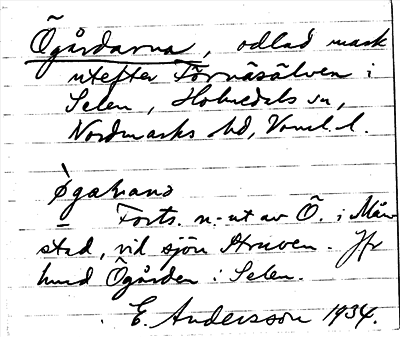 Õgårdarna, odlad mark
utefter Förnäsälven i
Selen, Holmedals sn,
Nordmarks hd, Vrml. l.
Forts. n.-ut av Õ. i Mår-
stad, vid sjön Hruven. Jfr
hmd Õgården i Selen.
E. Andersson 1934.